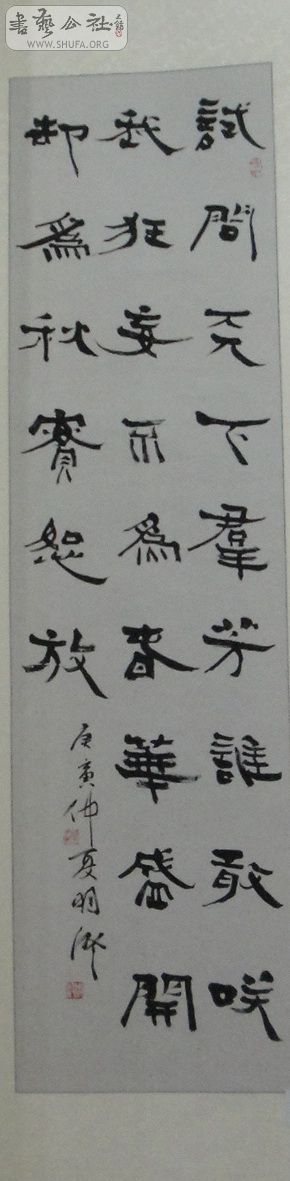 書藝公社
WWW.SHUFA.ORG
試問天下羣芳誰敢咲
我狂妄不為春華盛開
却為秋實恕放
庚寅仲夏明